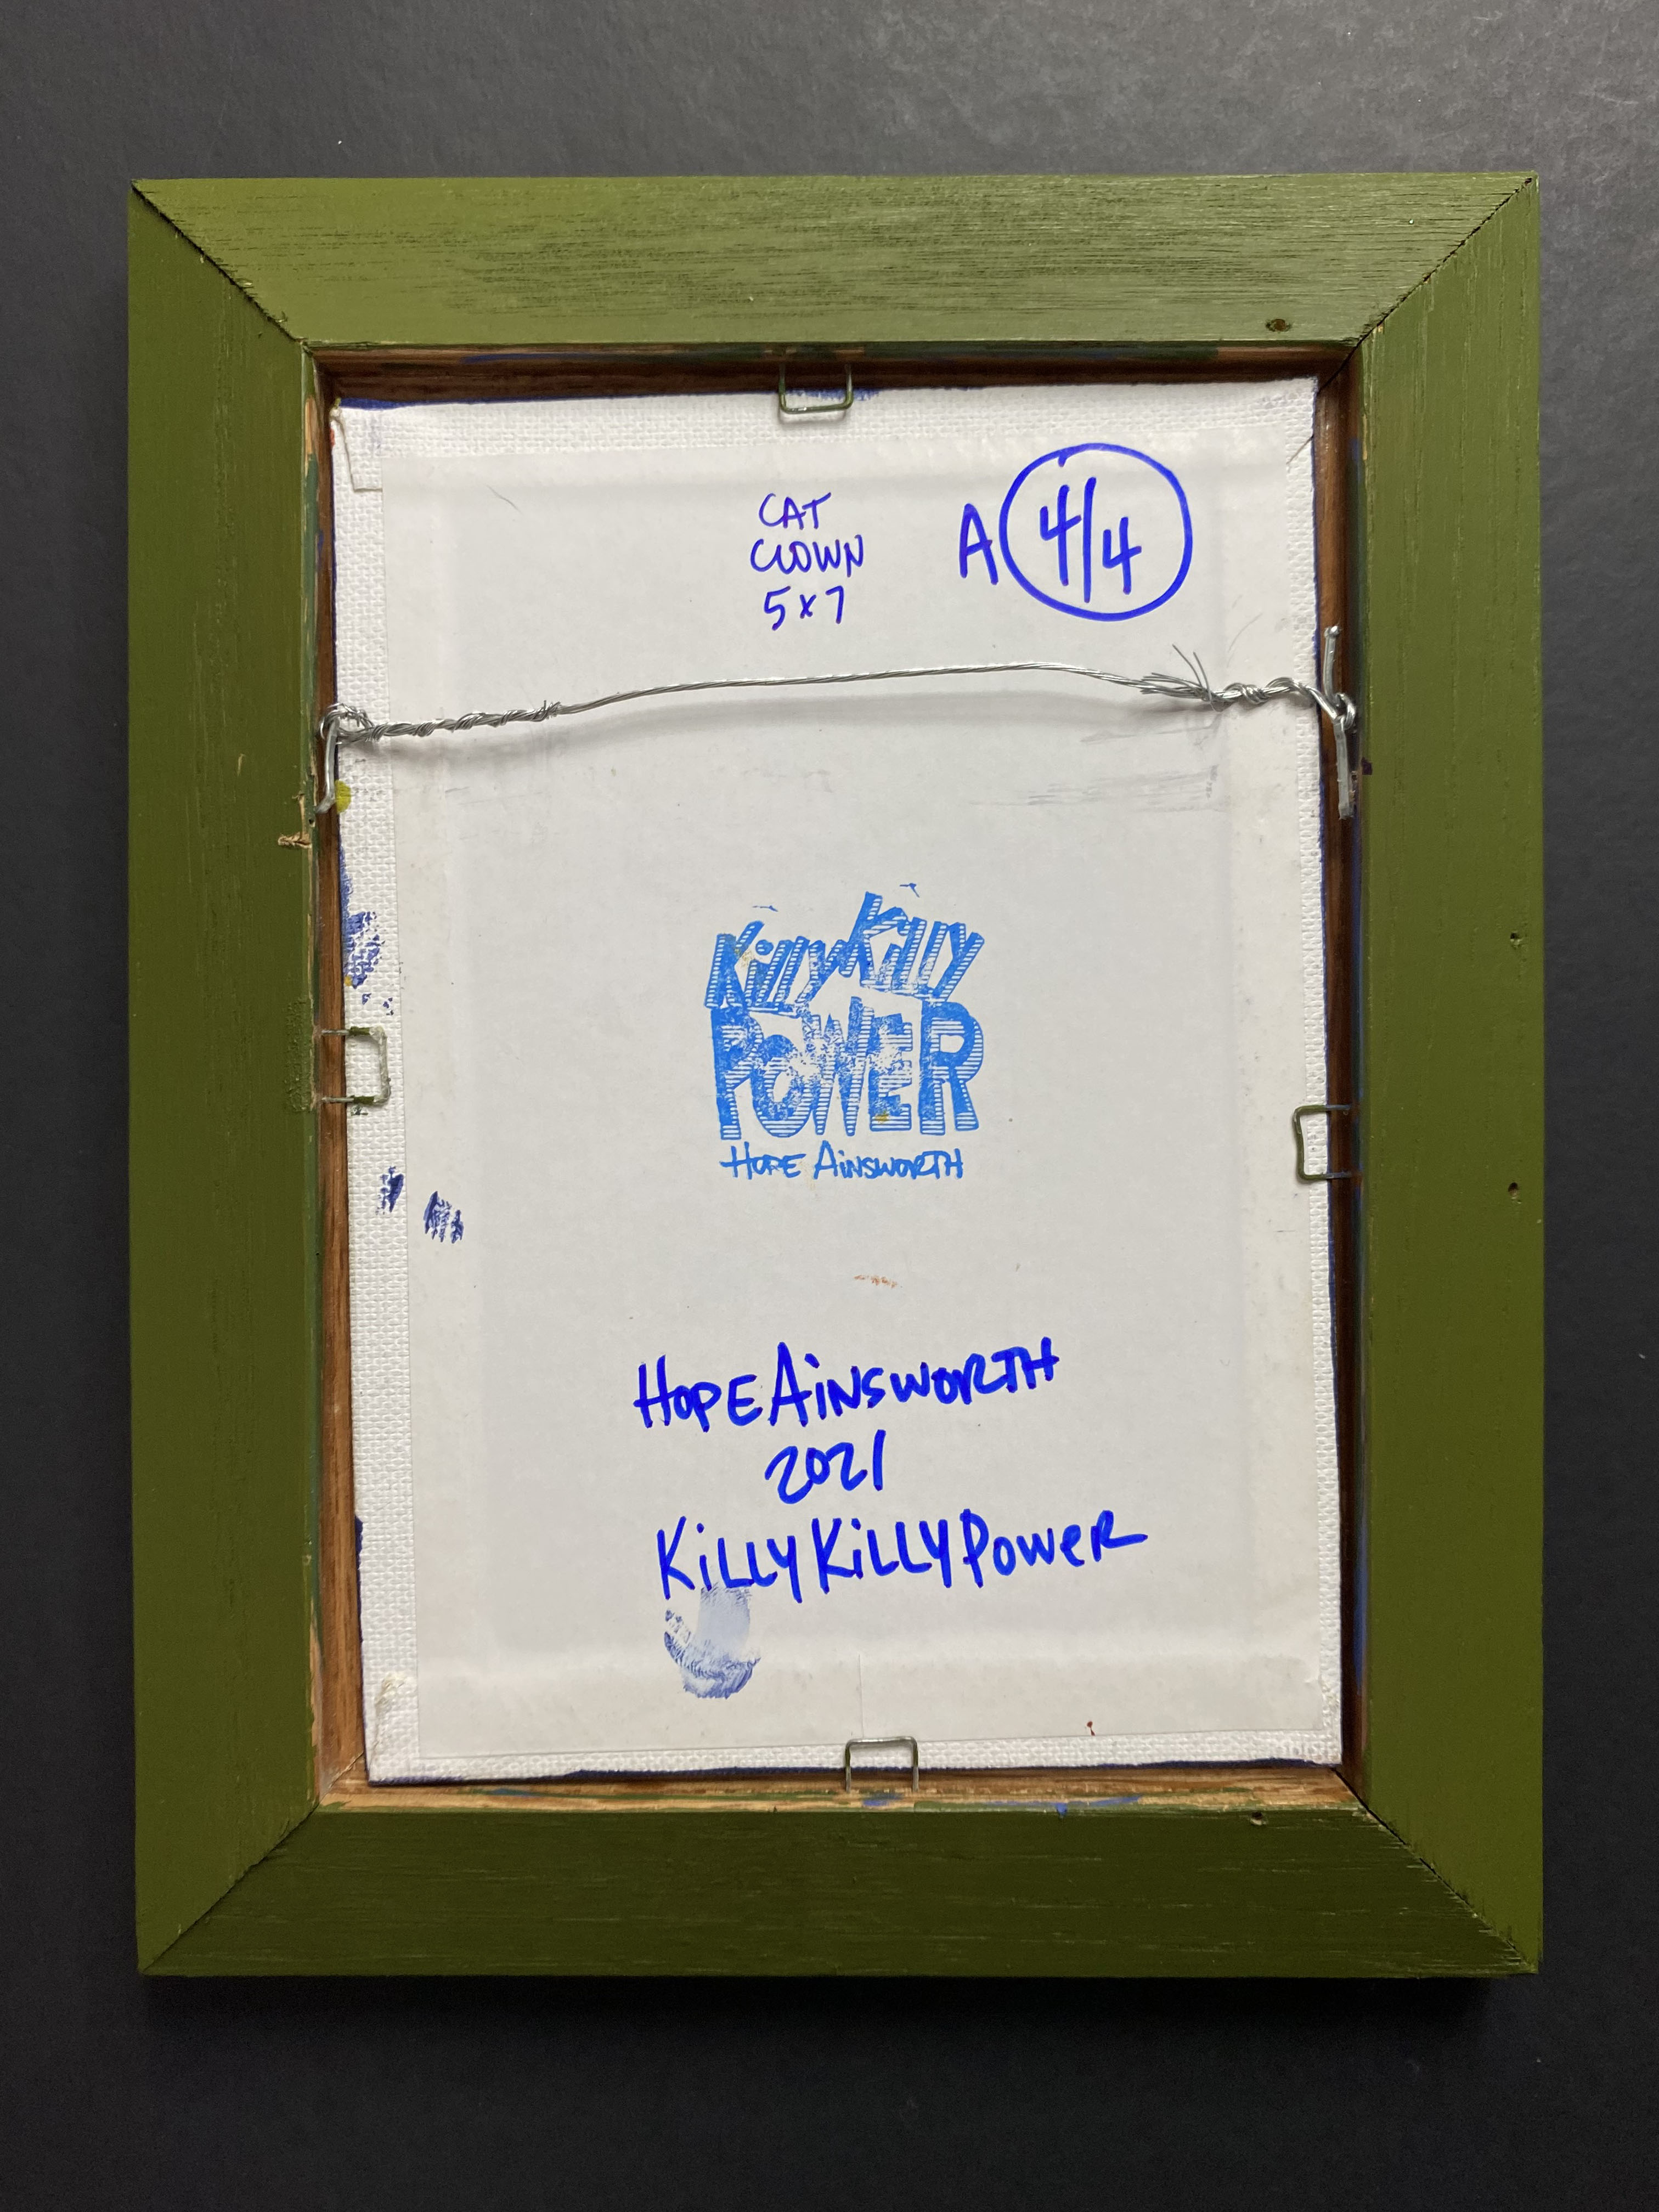 CAT
CLOWN
5x7
A 4/4
KillyKilly
POWER
HOPE AiNSWORTH
HOPE AiNSWORTH
2021
KiLLYKiLLYPoweR